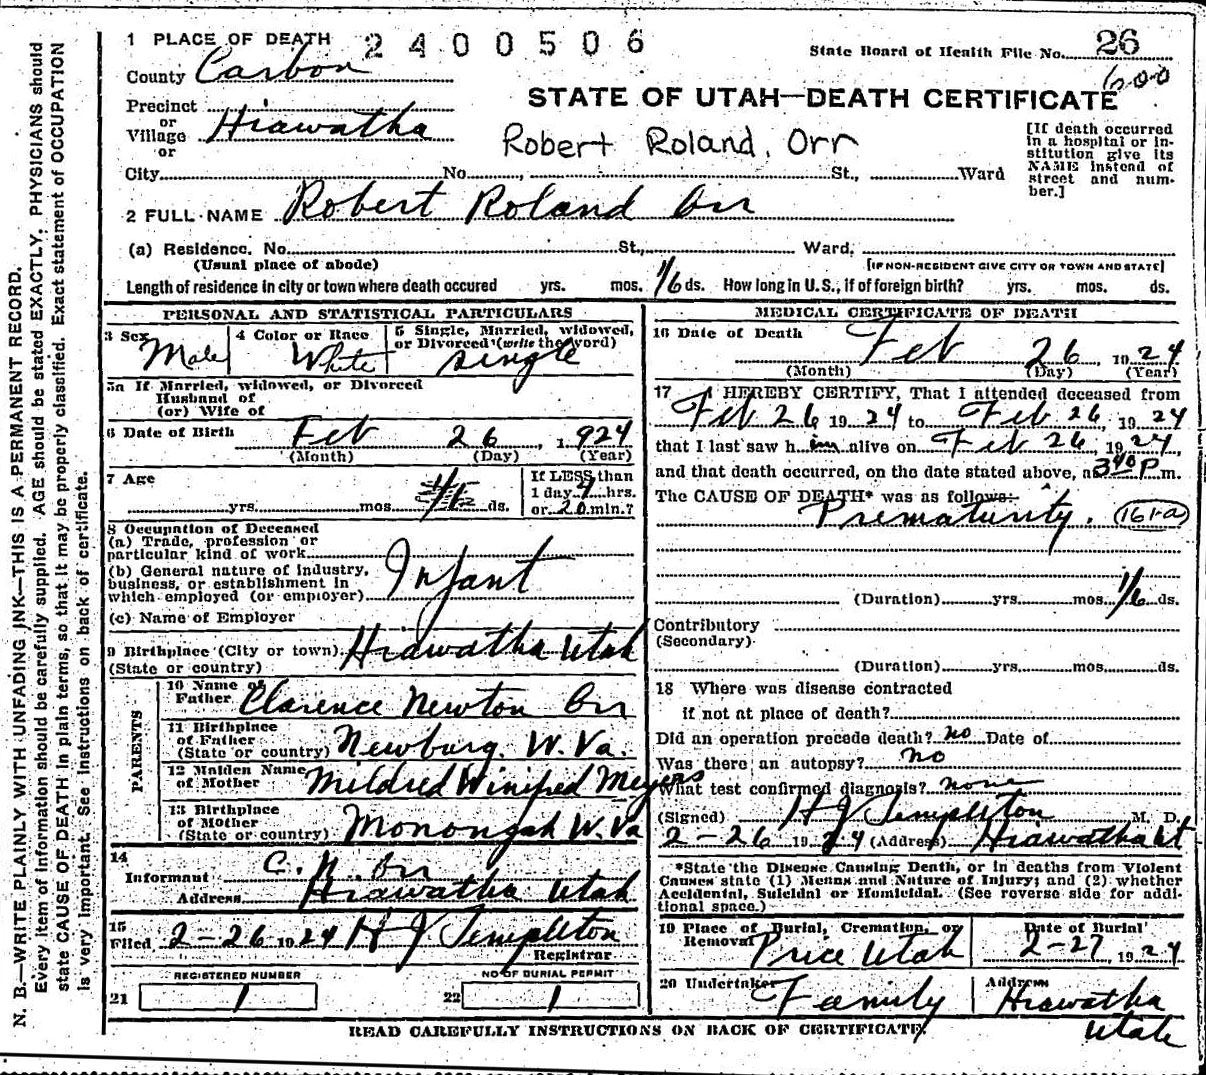 1 PLACE OF DEATH 2400506
State Board of Health File No. 26
County Carbon
600
STATE OF UTAH—DEATH CERTIFICATE
Precinct
or
Village Hiawatha
or
Robert Roland Orr
[If death occurred in a hospital or institution give its NAME instead of street and number.]
City No. St., Ward
2 FULL NAME Robert Roland Orr
(a) Residence. No. St., Ward.
(Usual place of abode) [IF NON-RESIDENT GIVE CITY OR TOWN AND STATE]
Length of residence in city or town where death occured yrs. mos. 1/6 ds. How long in U. S., if of foreign birth? yrs. mos. ds.
PERSONAL AND STATISTICAL PARTICULARS
3 Sex Male
4 Color or Race White
5 Single, Married, widowed, or Divorced (write the word) single
5a If Married, widowed, or Divorced
Husband of
(or) Wife of
6 Date of Birth Feb 26, 1924
(Month) (Day) (Year)
7 Age yrs. mos. 1/6 ds.
If LESS than
1 day 4 hrs.
or 20 min.?
8 Occupation of Deceased
(a) Trade, profession or
particular kind of work
(b) General nature of industry,
business, or establishment in
which employed (or employer) Infant
(c) Name of Employer
9 Birthplace (City or town) Hiawatha Utah
(State or country)
PARENTS
10 Name of
Father Clarence Newton Orr
11 Birthplace
of Father
(State or country) Newburg. W. Va.
12 Maiden Name
of Mother Mildred Winifred Meyers
13 Birthplace
of Mother
(State or country) Monongah W. Va
14
Informant C. N. Orr
Address Hiawatha Utah
15
Filed 2-26 1924 H J Templeton
Registrar
REGISTERED NUMBER
21 1
NO OF BURIAL PERMIT
22 1
MEDICAL CERTIFICATE OF DEATH
16 Date of Death Feb 26, 1924
(Month) (Day) (Year)
17 I HEREBY CERTIFY, That I attended deceased from
Feb 26 1924 to Feb 26, 1924
that I last saw him alive on Feb 26, 1924,
and that death occurred, on the date stated above, a 3 40 P m.
The CAUSE OF DEATH* was as follows:
Prematurity. (161-a)
(Duration) yrs. mos. 1/6 ds.
Contributory
(Secondary)
(Duration) yrs. mos. ds.
18 Where was disease contracted
if not at place of death?
Did an operation precede death? no Date of
Was there an autopsy? no
What test confirmed diagnosis? none
(Signed) H J Templeton M. D.
2-26 1924 (Address) Hiawatha Ut
*State the Disease Causing Death, or in deaths from Violent
Causes state (1) Means and Nature of Injury; and (2) whether
Accidental, Suicidal or Homicidal. (See reverse side for additional space.)
19 Place of Burial, Cremation, or
Removal Price Utah
Date of Burial
2-27 1924
20 Undertaker Family
Address Hiawatha
Utah
READ CAREFULLY INSTRUCTIONS ON BACK OF CERTIFICATE
N. B.—WRITE PLAINLY WITH UNFADING INK—THIS IS A PERMANENT RECORD.
Every item of information should be carefully supplied. AGE should be stated EXACTLY. PHYSICIANS should
state CAUSE OF DEATH in plain terms, so that it may be properly classified. Exact statement of OCCUPATION
is very important. See instructions on back of certificate.